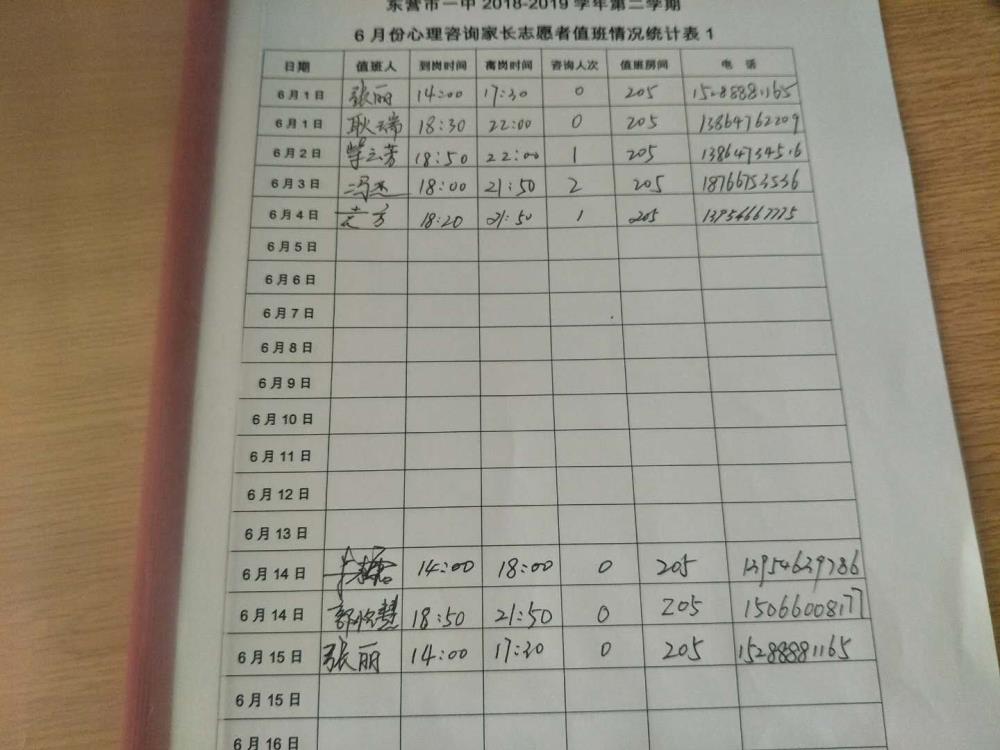 东营市一中 2018-2019 学年第二学期
6 月份心理咨询家长志愿者值班情况统计表 1
日期 值班人 到岗时间 离岗时间 咨询人次 值班房间 电 话
6 月 1 日 张丽 14:00 17:30 0 205 15288881165
6 月 1 日 耿瑞 18:30 22:00 0 205 13864762209
6 月 2 日 18:50 22:00 1 205 13864734516
6 月 3 日 冯杰 18:00 21:50 2 205 18766753536
6 月 4 日 18:20 21:50 1 205 13954667775
6 月 5 日
6 月 6 日
6 月 7 日
6 月 8 日
6 月 9 日
6 月 10 日
6 月 11 日
6 月 12 日
6 月 13 日
6 月 14 日 14:00 18:00 0 205 13954639786
6 月 14 日 18:50 21:50 0 205 15066008177
6 月 15 日 张丽 14:00 17:30 0 205 15288881165
6 月 15 日
6 月 16 日